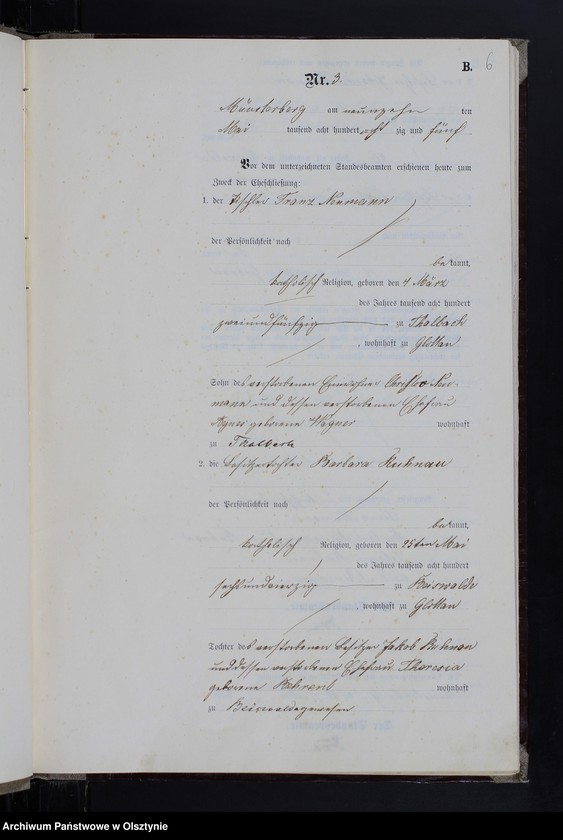 B. 6
Nr. 3.
Münsterberg am neunzehn ten
Mai tausend acht hundert acht zig und fünf
Vor dem unterzeichneten Standesbeamten erschienen heute zum
Zweck der Eheschließung:
1. der Tischler Franz Neumann
der Persönlichkeit nach
be kannt,
katholisch Religion, geboren den 4 März
des Jahres tausend acht hundert
zweiundfünfzig zu Thalbach
, wohnhaft zu Glottau
Sohn des verstorbenen Einwohner Neu-
mann und dessen verstorbenen Ehefrau
Agnes geborene Wegner wohnhaft
zu Thalbach
2. die Besitzertochter Barbara Kuhnau
der Persönlichkeit nach
be kannt,
katholisch Religion, geboren den 25ten Mai
des Jahres tausend acht hundert
sechsundvierzig zu Beiswalde
, wohnhaft zu Glottau
Tochter des verstorbenen Besitzer Jakob Kuhnau
und dessen verstorbenen Ehefrau Theresia
geborene Behrend wohnhaft
zu Beiswalde gewesen
Archiwum Państwowe w Olsztynie